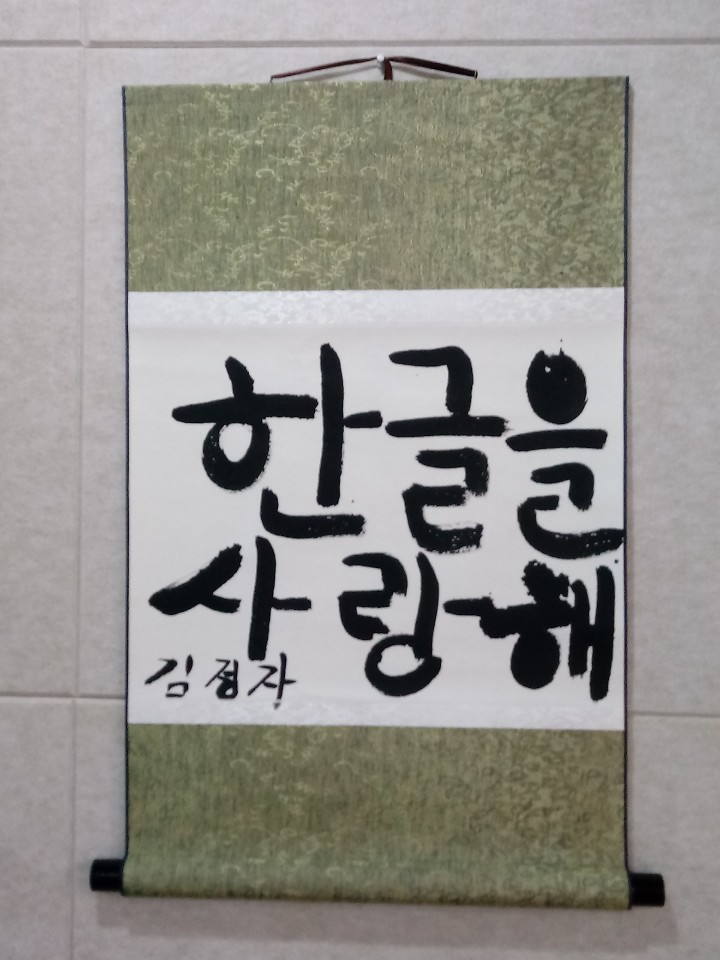 한글을
사랑해
김정자